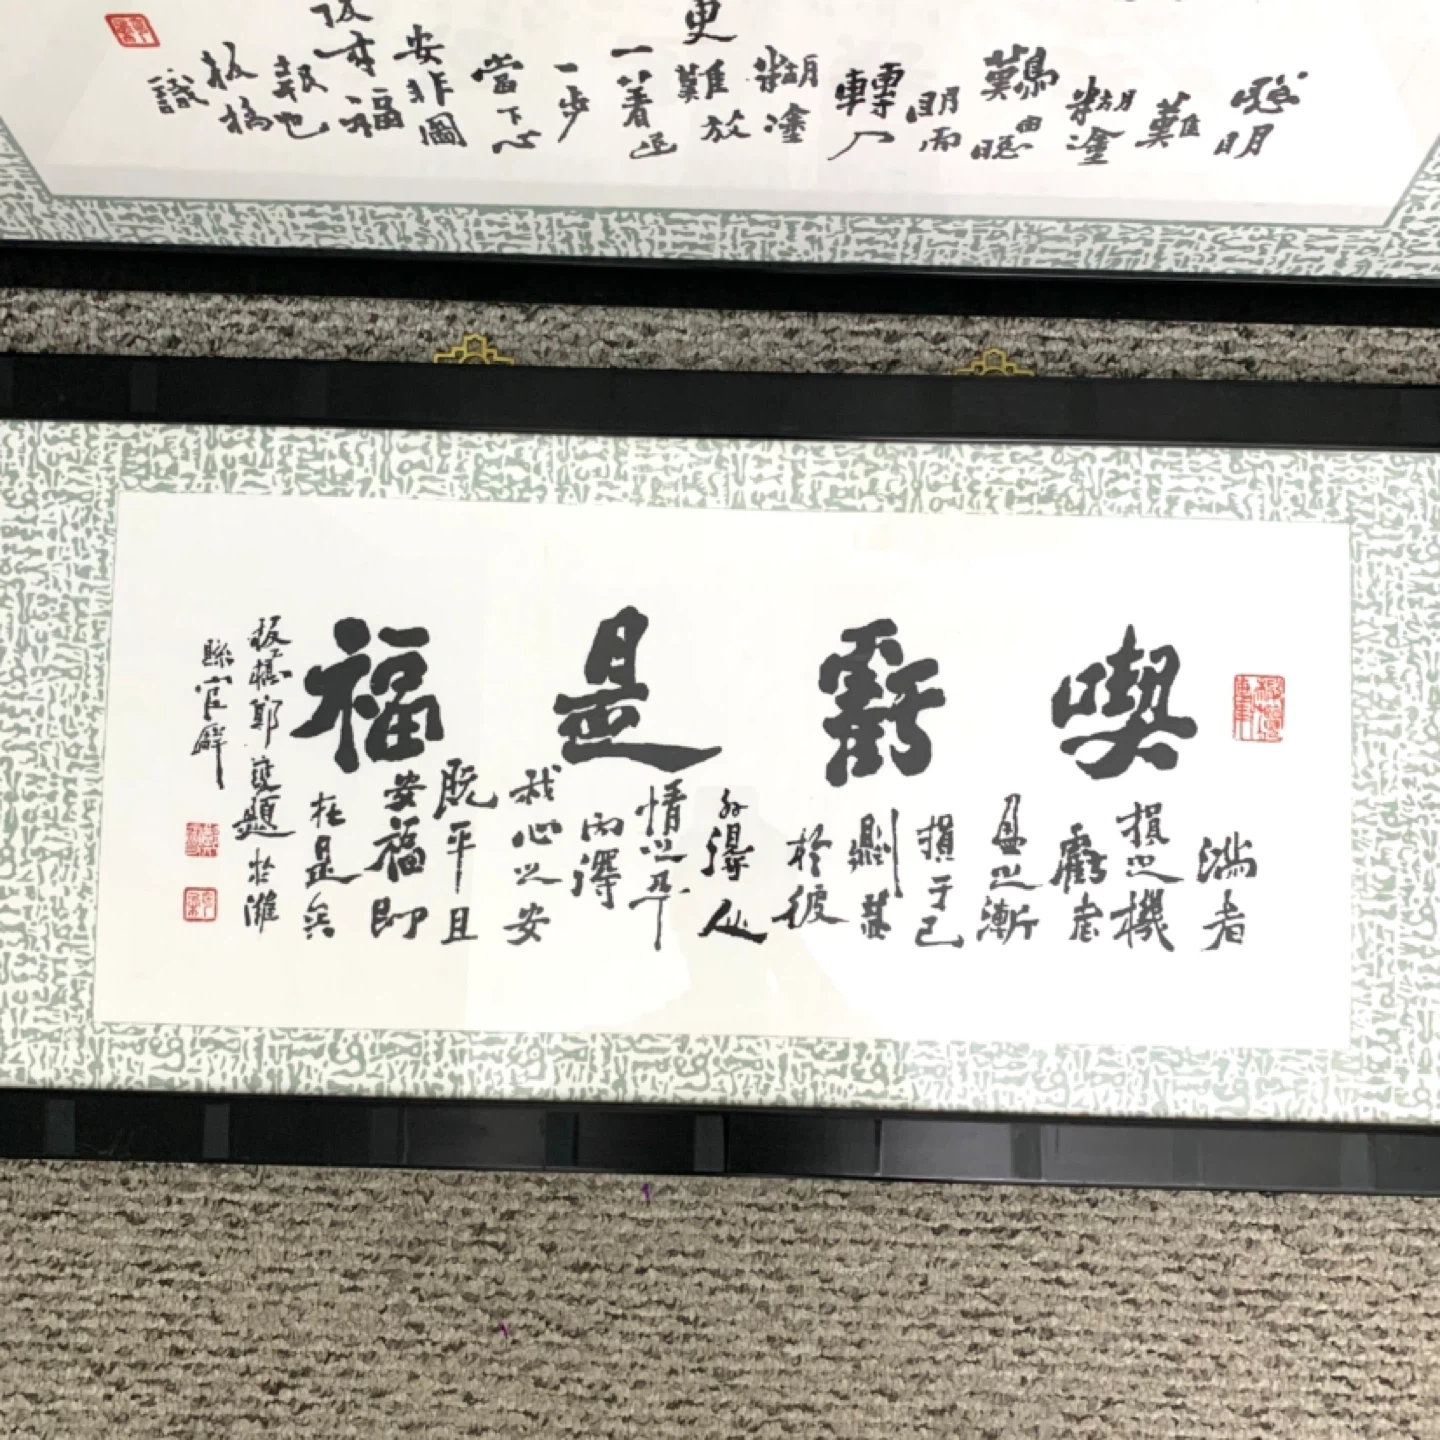 聰明
難
糊塗
難由聰
明而
轉入
糊塗
更難放
一著退
一步
當下心
安非圖
後來福
報也
板橋
識
喫虧是福
滿者
損之機
虧者
盈之漸
損于己
則益
於彼
外得人
情之平
内得
我心之安
既平且
安福即
在是矣
板橋鄭燮題於濰
縣官廨